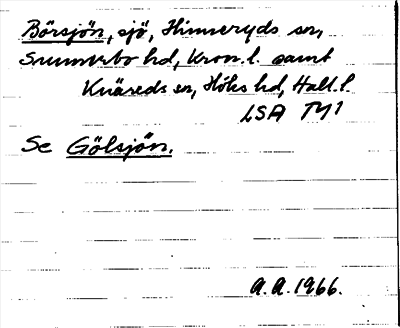 Börsjön, sjö, Hinneryds sn,
Sunnerbo hd, Kron. l. samt
Knäreds sn, Höks hd, Hall. l.
LSA TY1
Se Gölsjön.
A.A. 1966.